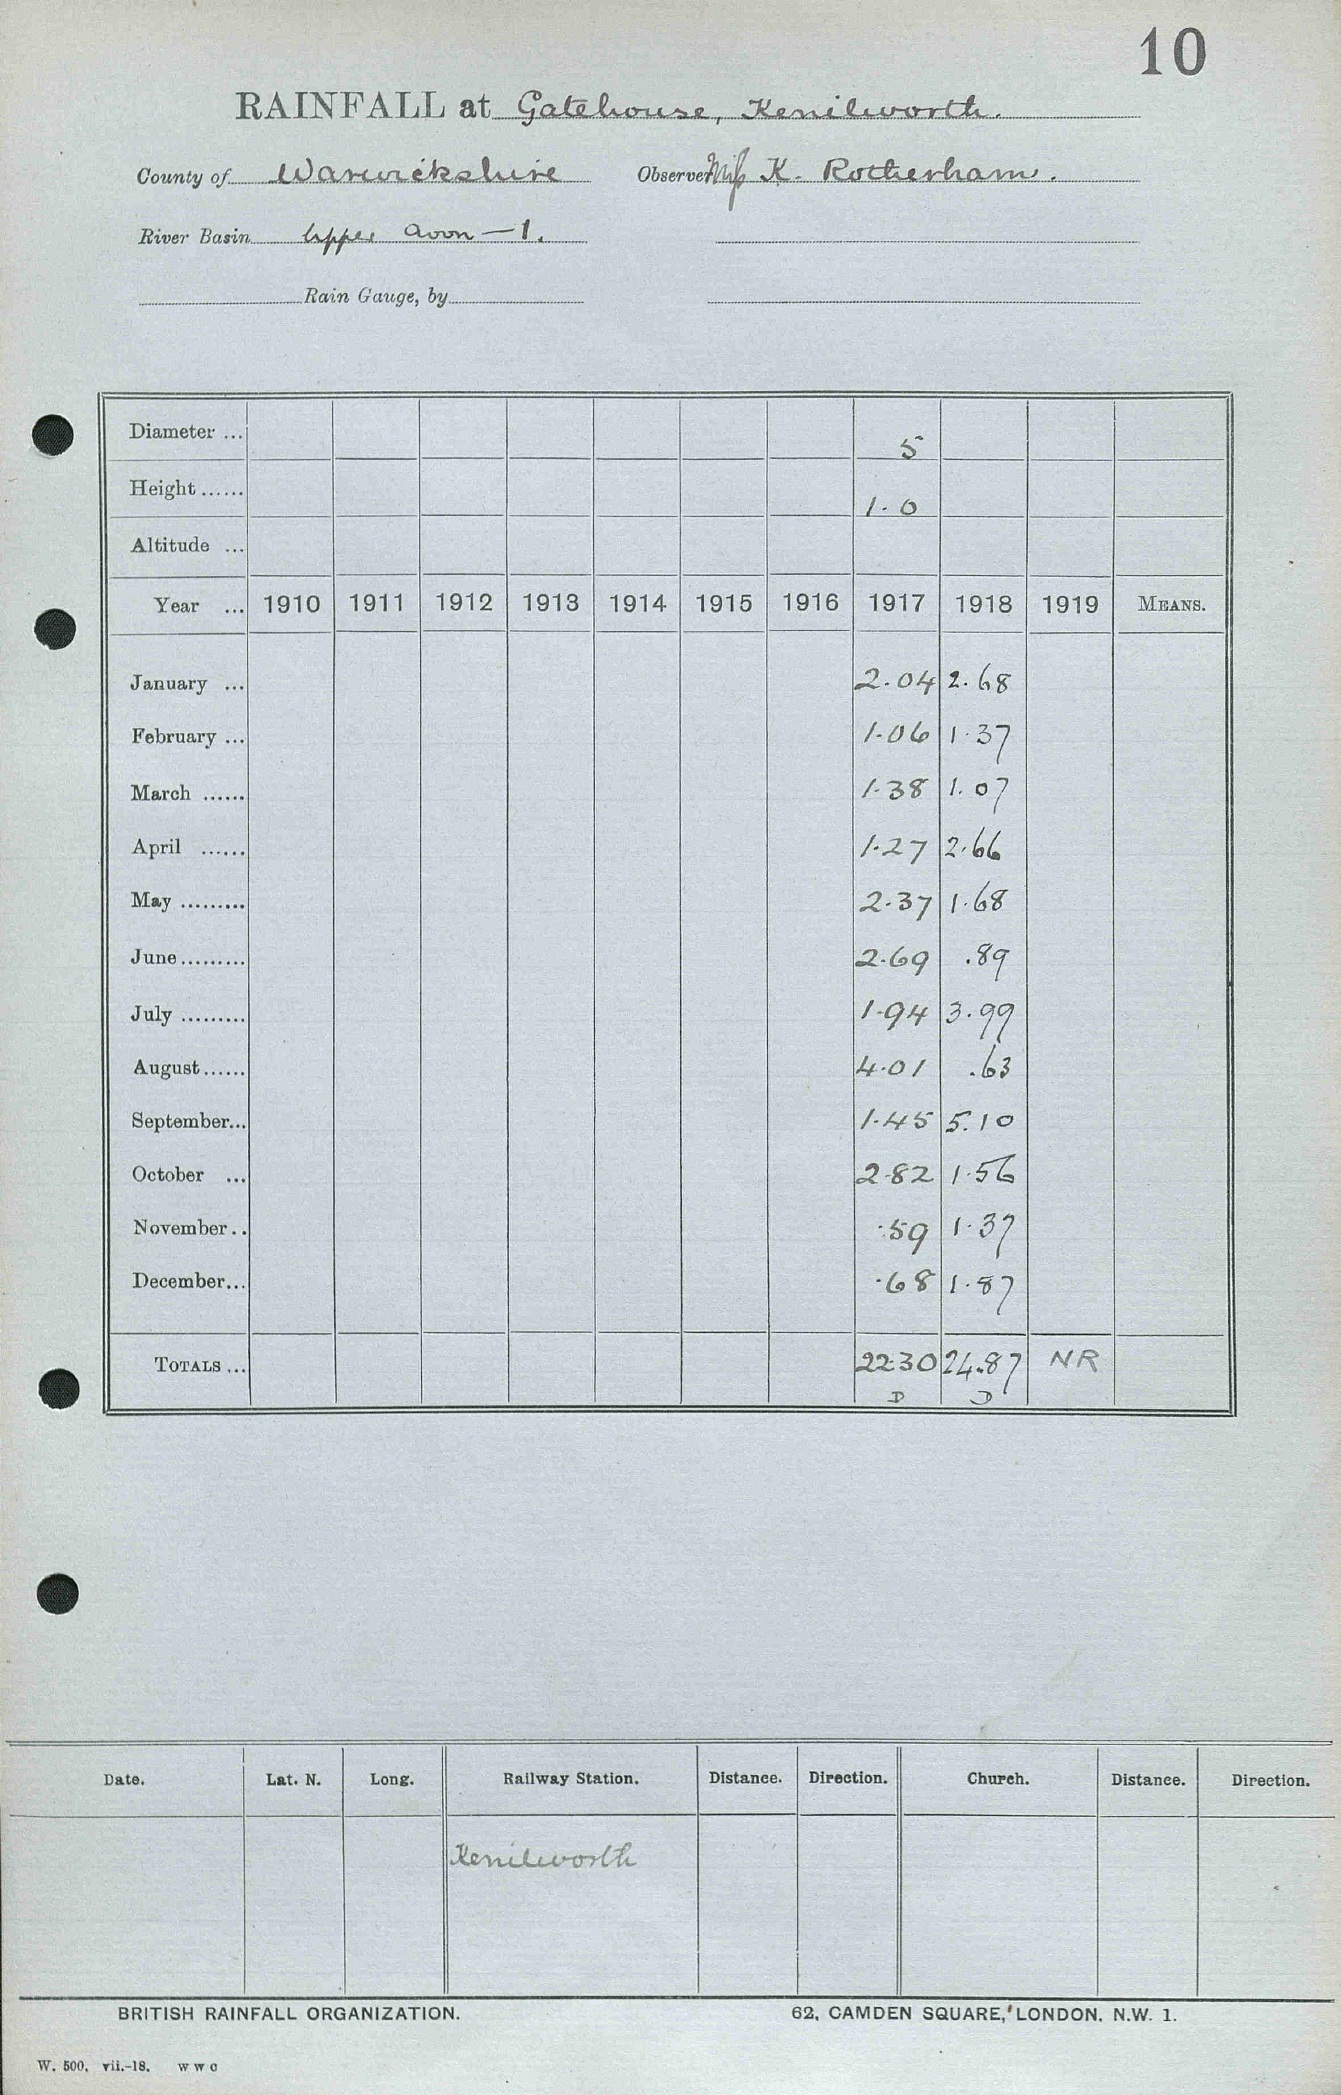 10
RAINFALL at Gatehouse, Kenilworth.
County of Warwickshire Observer Miss K. Rotherham.
River Basin Upper Avon — 1.
Rain Gauge, by
Diameter ... 5
Height ...... 1.0
Altitude ...
Year ... 1910 1911 1912 1913 1914 1915 1916 1917 1918 1919 MEANS.
January ... 2.04 2.68
February ... 1.06 1.37
March ...... 1.38 1.07
April ...... 1.27 2.66
May ......... 2.37 1.68
June ......... 2.69 .89
July ......... 1.94 3.99
August ...... 4.01 .63
September... 1.45 5.10
October ... 2.82 1.56
November .. .59 1.37
December... .68 1.87
TOTALS ... 22.30 24.87 NR
D D
Date. Lat. N. Long. Railway Station. Distance. Direction. Church. Distance. Direction.
Kenilworth
BRITISH RAINFALL ORGANIZATION. 62, CAMDEN SQUARE, LONDON. N.W. 1.
W. 500. vii.-18. W W C